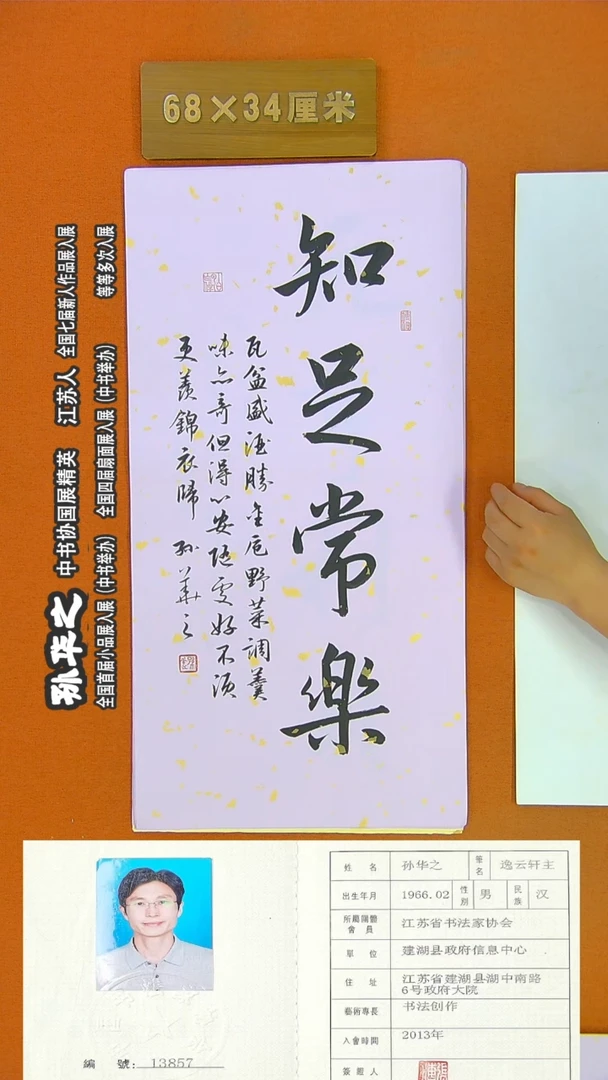 68×34厘米
知足常樂
瓦盆盛酒勝金卮野菜調羹
味亦奇但得心安随处好不须
更羡錦衣歸 孙華之
孙华之 中书协国展精英 江苏人 全国七届新人作品展入展
全国首届小品展入展（中书举办） 全国四届扇面展入展（中书举办） 等等多次入展
編 號：13857
姓 名 孙华之 筆名 逸云轩主
出生年月 1966.02 性别 男 民族 汉
所屬團體會員 江苏省书法家协会
單 位 建湖县政府信息中心
住 址 江苏省建湖县湖中南路6号政府大院
藝術專長 书法创作
入會時間 2013年
簽證人